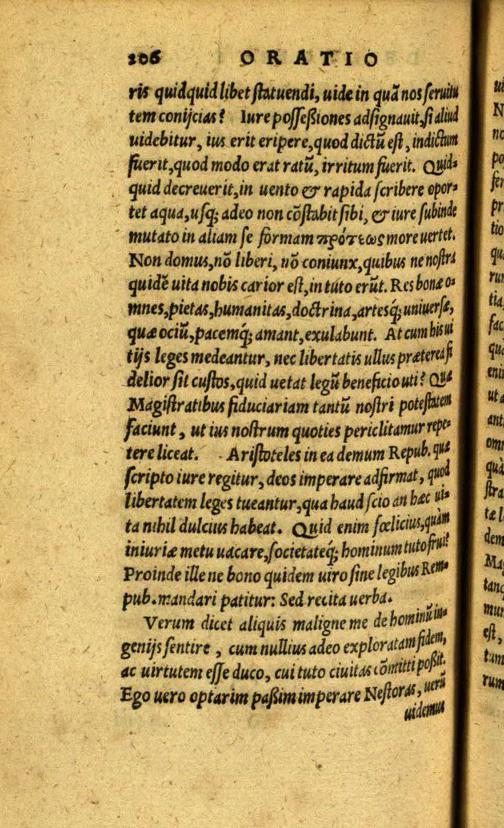 206 ORATIO
ris quidquid libet ſtatuendi, uide in quã nos ſeruitu
tem conijcias? Iure poſſeßiones adſignauit, ſi aliud
uidebitur, ius erit eripere, quod dictũ eſt, indictum
fuerit, quod modo erat ratũ, irritum fuerit. Quid-
quid decreuerit, in uento & rapida ſcribere opor-
tet aqua, uſq; adeo non cõſtabit ſibi, & iure ſubinde
mutato in aliam ſe formam πρότεως more uertet.
Non domus, nõ liberi, nõ coniunx, quibus ne noſtra
quidẽ uita nobis carior eſt, in tuto erũt. Res bonæ o-
mnes, pietas, humanitas, doctrina, artesq; uniuerſæ,
quæ ociũ, pacemq; amant, exulabunt. At cum his ui
tijs leges medeantur, nec libertatis ullus præterea fi
delior ſit cuſtos, quid uetat legũ beneficio uti? Quæ
Magiſtratibus fiduciariam tantũ noſtri poteſtatem
faciunt, ut ius noſtrum quoties periclitamur repe-
tere liceat. Ariſtoteles in ea demum Repub. quæ
ſcripto iure regitur, deos imperare adfirmat, quod
libertatem leges tueantur, qua haud ſcio an hæc ui-
ta nihil dulcius habeat. Quid enim fœlicius, quàm
iniuriæ metu uacare, ſocietateq; hominum tuto frui?
Proinde ille ne bono quidem uiro ſine legibus Rem-
pub. mandari patitur: Sed recita uerba.
Verum dicet aliquis maligne me de hominũ in-
genijs ſentire, cum nullius adeo exploratam fidem,
ac uirtutem eſſe duco, cui tuto ciuitas cõmitti poßit.
Ego uero optarim paßim imperare Neſtoras, uerũ
uidemus